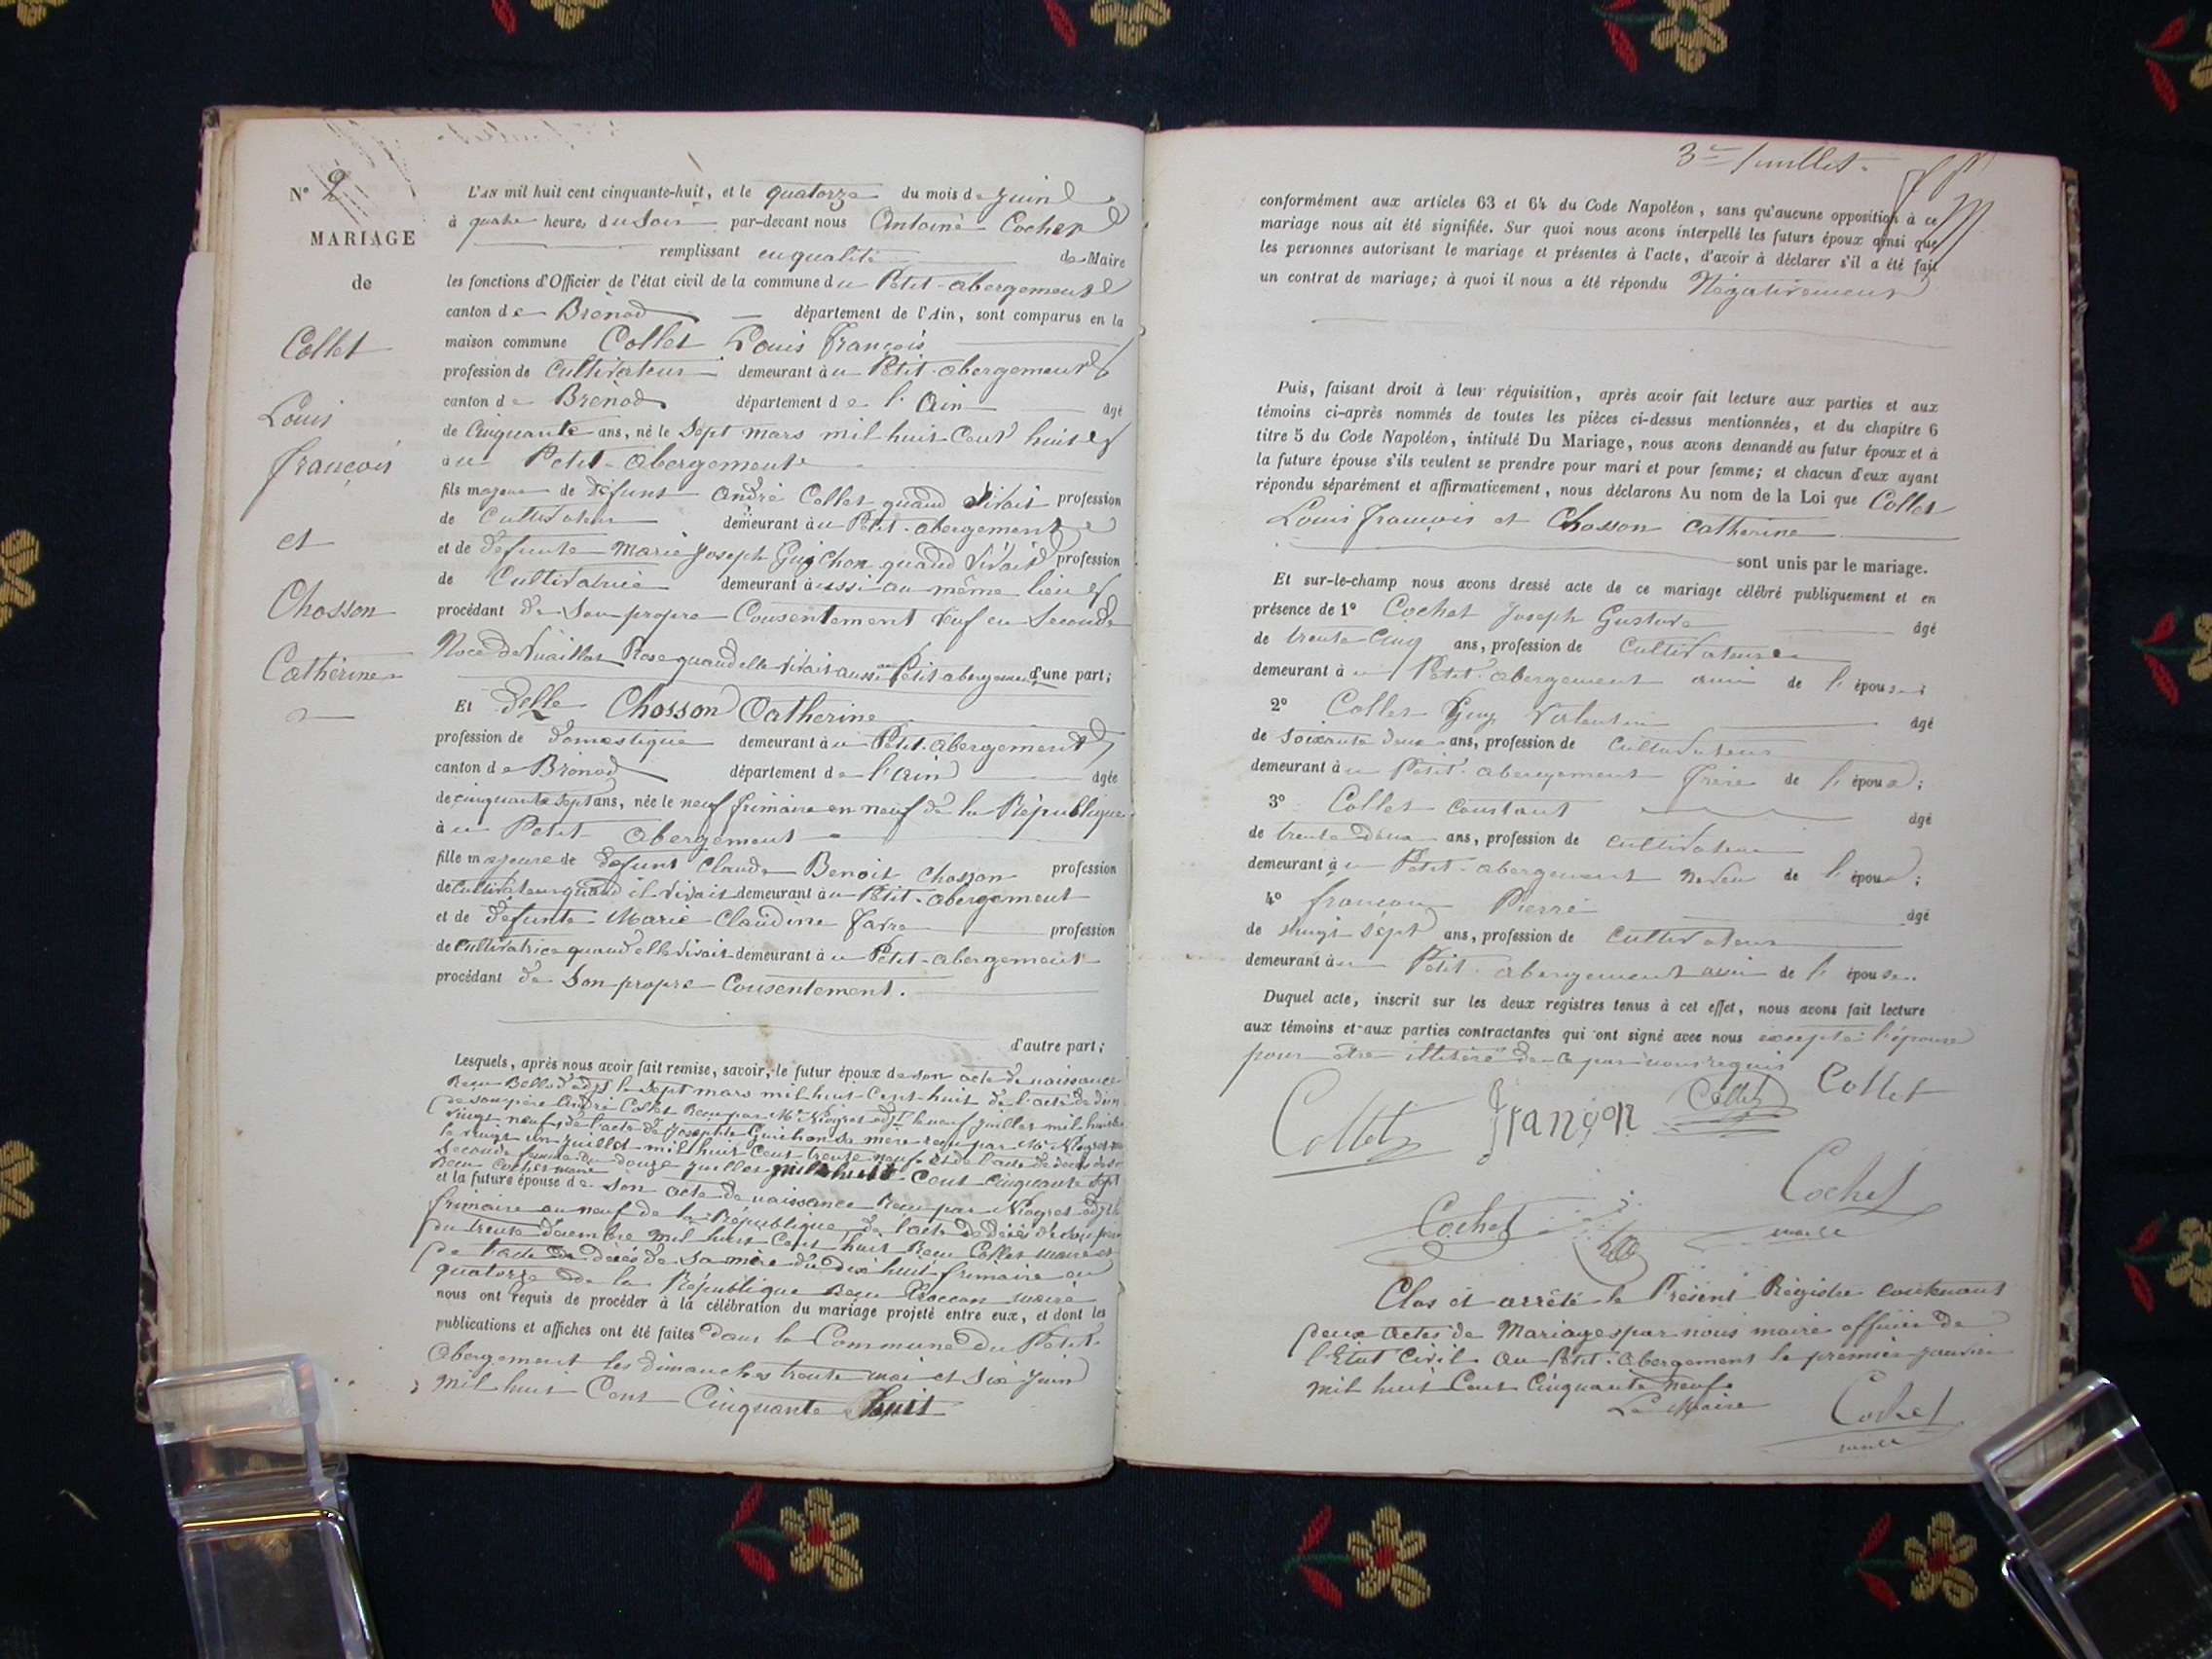 N° 2
MARIAGE
de
Collet
Louis
françois
et
Chosson
Catherine
L'AN mil huit cent cinquante-huit, et le quatorze du mois de juin
à quatre heures du Soir par-devant nous Antoine Cochet
remplissant en qualité de Maire
les fonctions d'Officier de l'état civil de la commune du Petit-abergement
canton de Brénod département de l'Ain, sont comparus en la
maison commune Collet Louis françois
profession de Cultivateur demeurant au Petit-abergement
canton de Brénod département de l'Ain âgé
de Cinquante ans, né le Sept mars mil huit Cent huit
au Petit-abergement
fils majeur de défunt André Collet quand vivait profession
de Cultivateur demeurant au Petit-abergement
et de defunte Marie Joseph Guichon quand vivait profession
de Cultivatrice demeurant aussi au même lieu
procédant de Son propre Consentement veuf en Seconde
Noce de Vuaillat Rose quand elle vivait aussi au Petit abergement d'une part;
Et Delle Chosson Catherine
profession de domestique demeurant au Petit-abergement
canton de Brénod département de l'Ain âgée
de cinquante sept ans, née le neuf frimaire an neuf de la République
au Petit abergement
fille majeure de défunt Claude Benoit Chosson profession
de Cultivateur quand il vivait demeurant au Petit-abergement
et de défunte Marie Claudine favre profession
de Cultivatrice quand elle vivait demeurant au Petit-abergement
procédant de Son propre Consentement.
d'autre part;
Lesquels, après nous avoir fait remise, savoir, le futur époux de son acte de naissance
Reçu Bellod adjt le Sept mars mil huit Cent huit de l'acte de
de son père André Collet Reçu par Mr Niogret adjt le neuf juillet mil huit
vingt neuf, de l'acte de Josephte Guichon sa mère reçu par Mr Niogret
le vingt un juillet mil huit Cent trente neuf et de l'acte de décès de sa
Seconde femme du douze juillet mil huit Cent Cinquante Sept
Reçu Cochet maire
et la future épouse de son acte de naissance Reçu par Niogret adjt le
frimaire an neuf de la République, de l'acte de décès de son père
du trente décembre mil huit Cent huit Reçu Collet maire et
de l'acte de décès de Sa mère du dix huit frimaire an
quatorze de la République Reçu maire
nous ont requis de procéder à la célébration du mariage projeté entre eux, et dont les
publications et affiches ont été faites dans la Commune du Petit-
abergement les dimanches trente mai et Six juin
mil huit Cent Cinquante huit
3me feuillet.
conformément aux articles 63 et 64 du Code Napoléon, sans qu'aucune opposition à ce
mariage nous ait été signifiée. Sur quoi nous avons interpellé les futurs époux ainsi que
les personnes autorisant le mariage et présentes à l'acte, d'avoir à déclarer s'il a été fait
un contrat de mariage; à quoi il nous a été répondu Négativement
Puis, faisant droit à leur réquisition, après avoir fait lecture aux parties et aux
témoins ci-après nommés de toutes les pièces ci-dessus mentionnées, et du chapitre 6
titre 5 du Code Napoléon, intitulé Du Mariage, nous avons demandé au futur époux et à
la future épouse s'ils veulent se prendre pour mari et pour femme; et chacun d'eux ayant
répondu séparément et affirmativement, nous déclarons Au nom de la Loi que Collet
Louis françois et Chosson Catherine
sont unis par le mariage.
Et sur-le-champ nous avons dressé acte de ce mariage célébré publiquement et en
présence de 1° Cochet Joseph Gustave âgé
de trente Cinq ans, profession de Cultivateur
demeurant au Petit-abergement ami de l'épouse;
2° Collet Guy Valentin âgé
de Soixante deux ans, profession de Cultivateur
demeurant au Petit-abergement frère de l'époux;
3° Collet Constant âgé
de trente deux ans, profession de Cultivateur
demeurant au Petit-abergement Neveu de l'époux;
4° françon Pierre âgé
de vingt Sept ans, profession de Cultivateur
demeurant au Petit-abergement ami de l'épouse.
Duquel acte, inscrit sur les deux registres tenus à cet effet, nous avons fait lecture
aux témoins et aux parties contractantes qui ont signé avec nous excepté l'épouse
pour être illitéré de ce par nous requis
Collet françon Collet Collet
Cochet Cochet
maire
Clos et arrêté le Présent Régistre contenant
deux actes de Mariages par nous maire officier de
l'Etat Civil au Petit-abergement le premier janvier
mil huit Cent Cinquante neuf.
Le Maire Cochet
maire